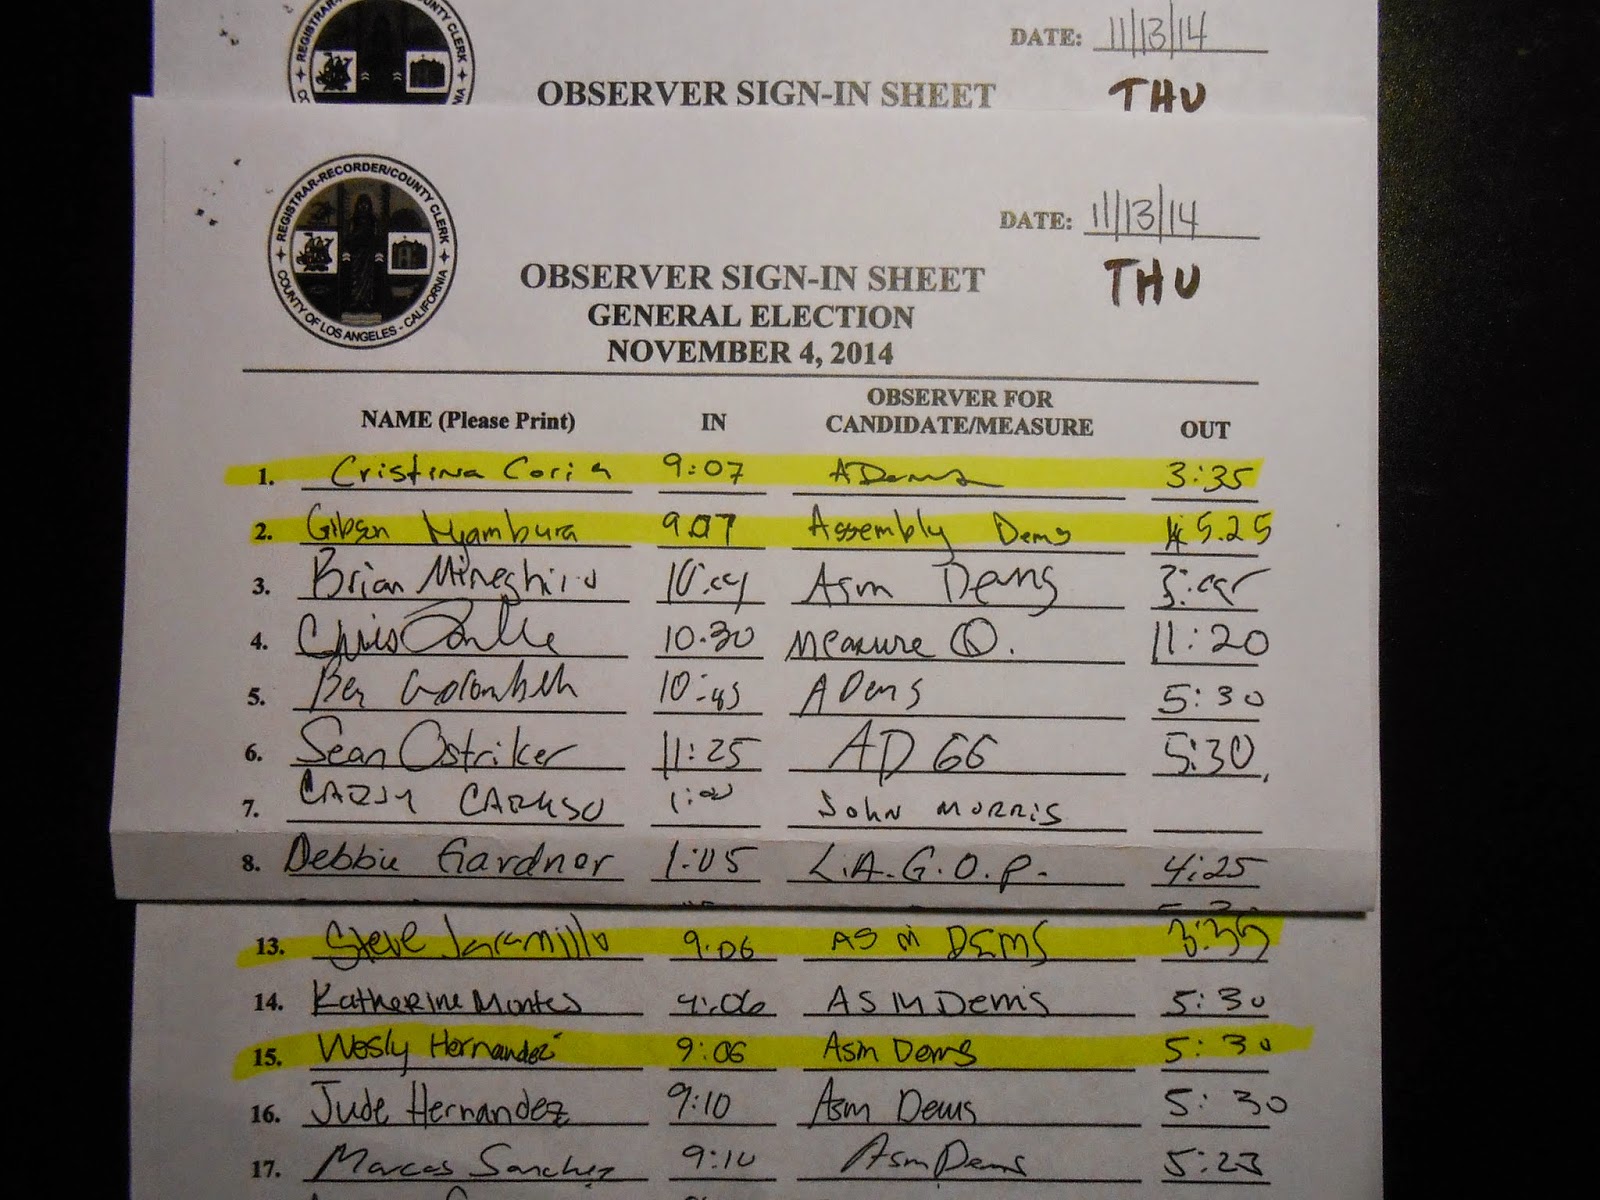 REGISTRAR-RECORDER/COUNTY CLERK
DATE: 11/13/14
OBSERVER SIGN-IN SHEET THU
REGISTRAR-RECORDER/COUNTY CLERK
COUNTY OF LOS ANGELES - CALIFORNIA
DATE: 11/13/14
OBSERVER SIGN-IN SHEET THU
GENERAL ELECTION
NOVEMBER 4, 2014
NAME (Please Print) IN OBSERVER FOR CANDIDATE/MEASURE OUT
1. Cristina Coria 9:07 ADems 3:35
2. Gibson Nyambura 9.07 Assembly Dems 5.25
3. Brian Asm Dems
4. Chris 10.30 Measure Q. 11:20
5. Ben 10:45 ADems 5:30
6. Sean Ostriker 11:25 AD 66 5:30
7. CARUSO 1:00 JOHN MORRIS
8. Debbie Gardner 1:05 L.A.G.O.P. 4:25
13. Steve Jaramillo 9:06 ASM DEMS 3:35
14. Katherine Montes 9:06 ASM Dems 5:30
15. Wesly Hernandez 9:06 Asm Dems 5:30
16. Jude Hernandez 9:10 Asm Dems 5:30
17. Marcos Sanchez 9:10 Asm Dems 5:23